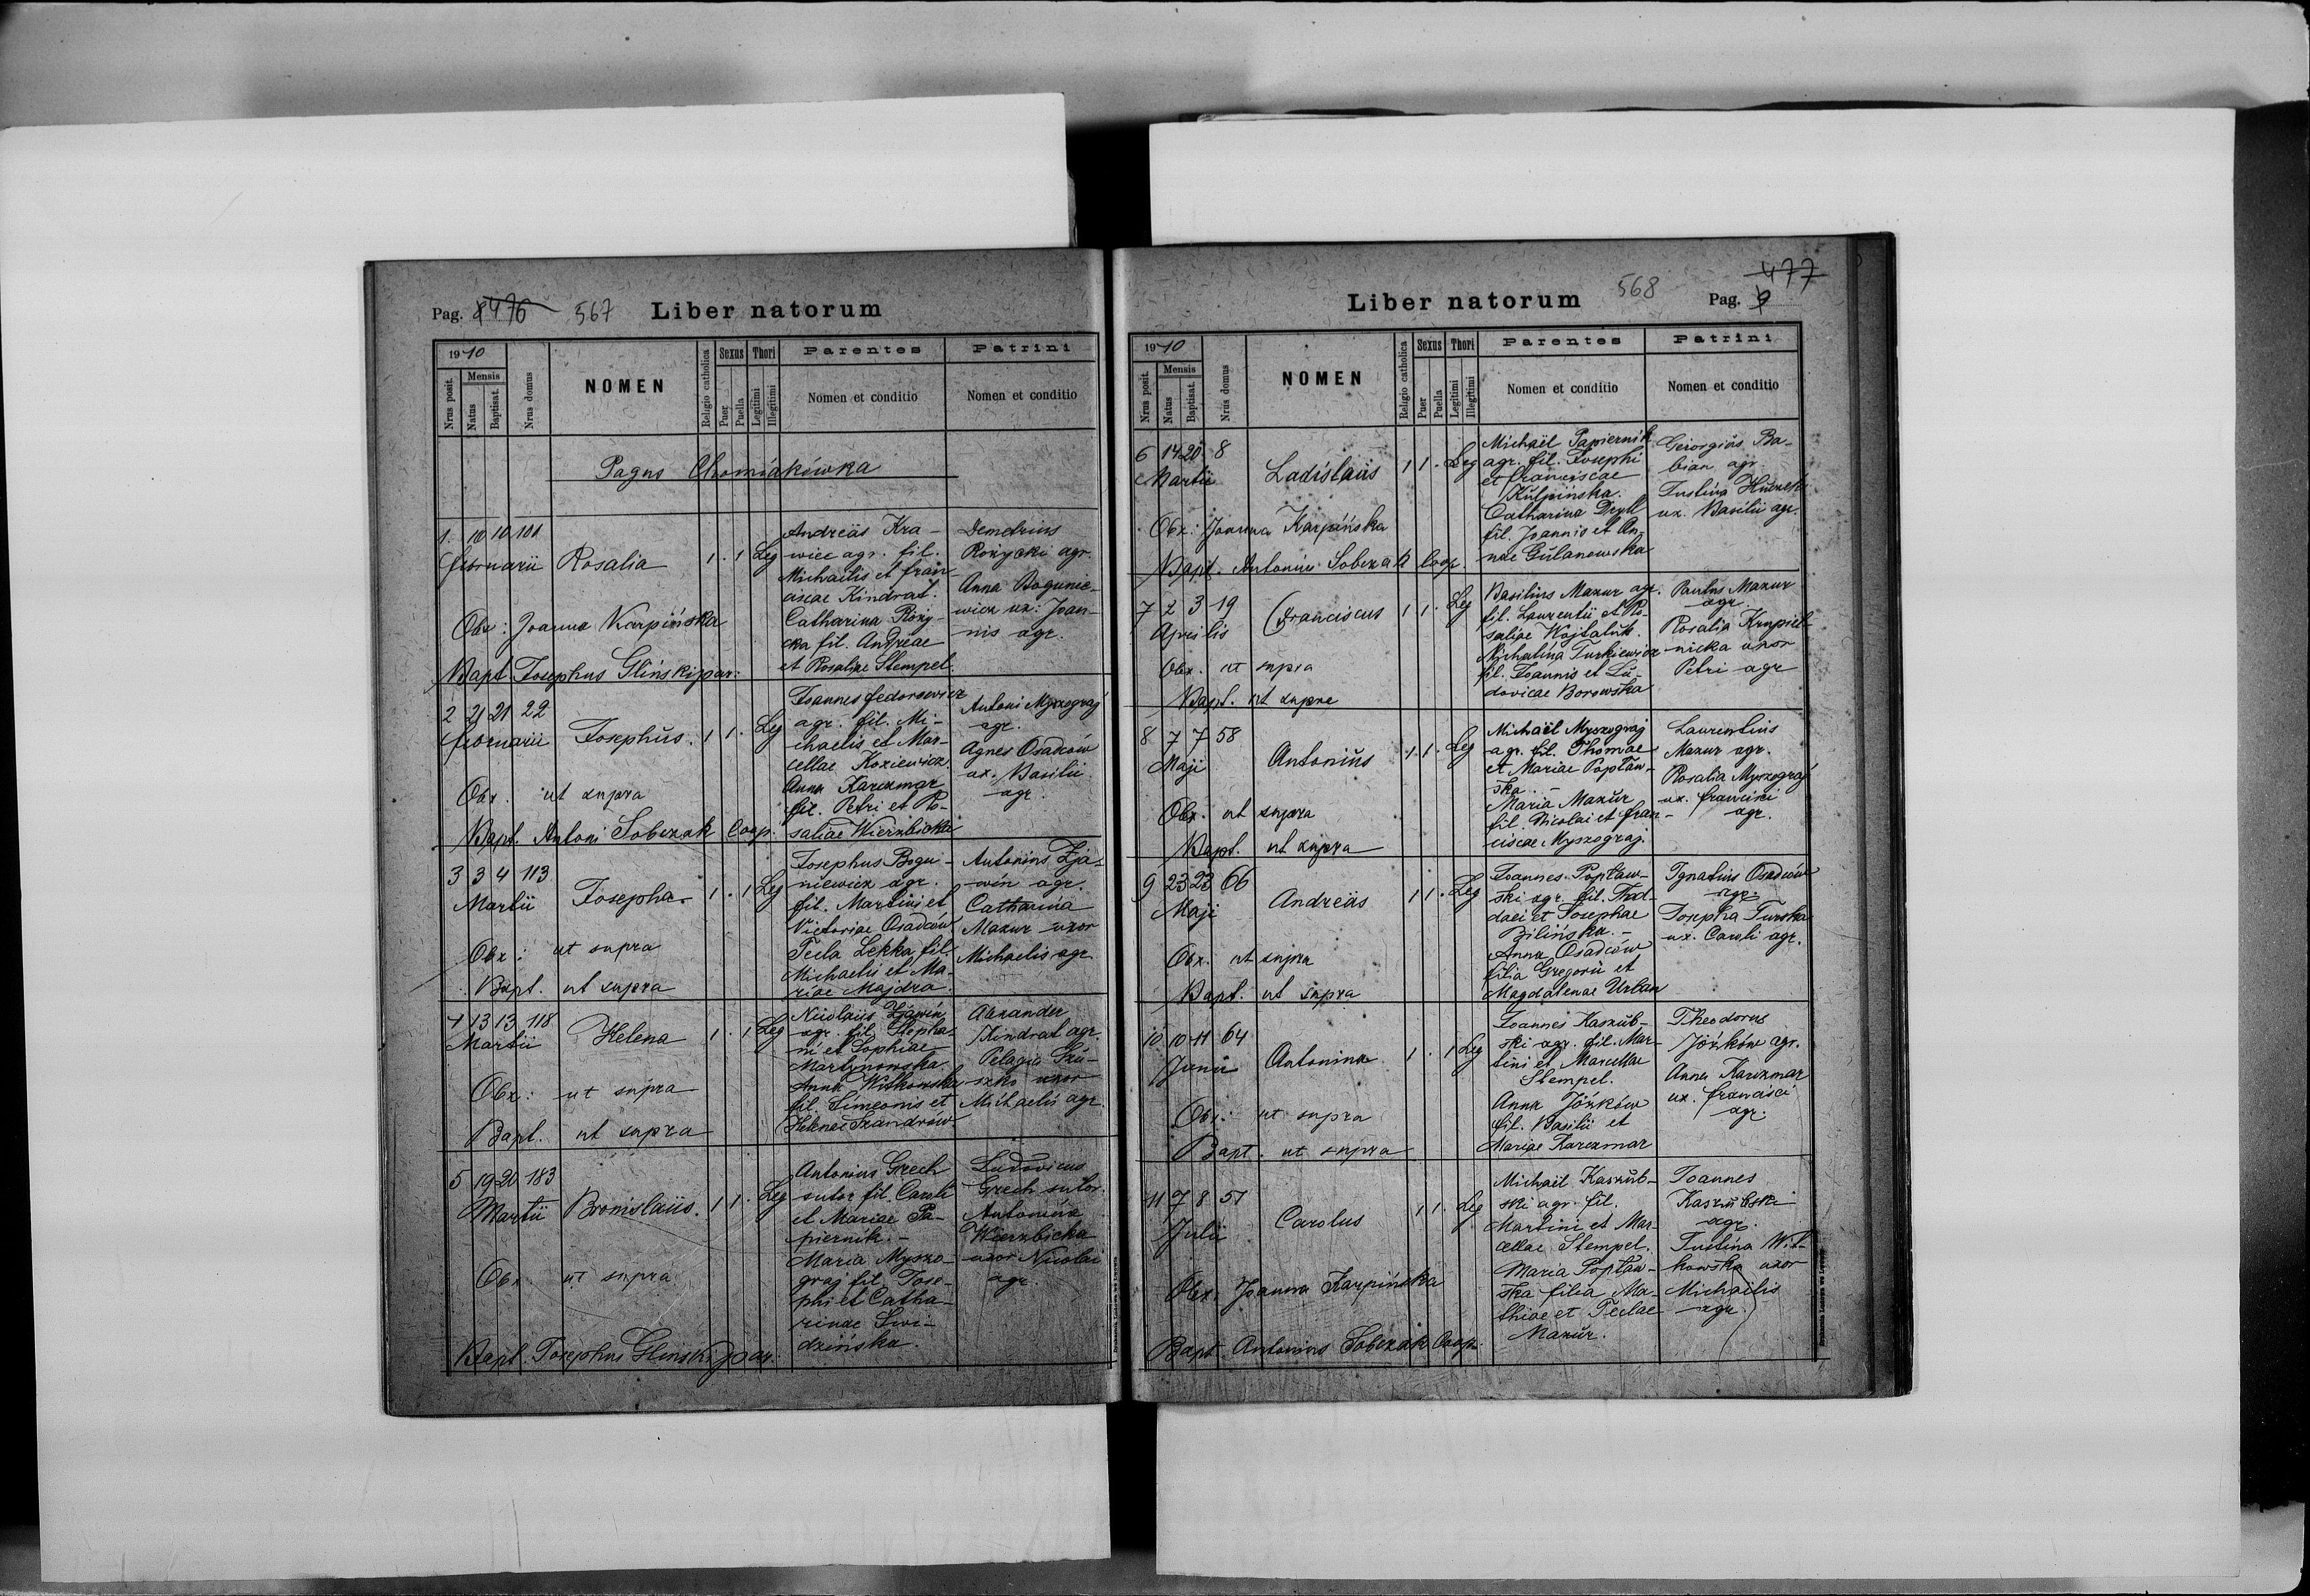 Pag. 8 476 567 Liber natorum
1910
Nrus posit.
Mensis
Natus
Baptisat.
Nrus domus
NOMEN
Religio catholica
Sexus
Puer
Puella
Thori
Legitimi
Illegitimi
Parentes
Nomen et conditio
Patrini
Nomen et conditio
Pagus Chomiakówka
1. 10 10 101
februarii Rosalia 1 . 1 Leg
Obx: Joanna Karpińska
Bapt Josephus Gliński par.
Andreas Kra-
wiec agr. fil.
Michaelis et fran-
ciscae Kindrat.
Catharina Róży-
cka fil. Andreae
et Rosaliae Stempel.
Demetrius
Rożycki agr.
Anna Bogunie-
wicz ux: Joan-
nis agr.
2 21 21 22
februarii Josephus. 1 1 . Leg
Obx. ut supra
Bapt. Antoni Sobczak Coop.
Joannes fedorowicz
agr. fil. Mi-
chaelis et Mar-
cellae Koziewicz.
Anna Karczmar
fil. Petri et Ro-
saliae Wierzbicka
Antoni Myszograj
agr.
Agnes Osadców
ux. Basilii
agr.
3 3 4 113
Martii Josepha 1 . 1 Leg
Obx: ut supra
Bapt. ut supra
Josephus Bogu-
niewicz agr.
fil. Martini et
Victoriae Osadców
Tecla Lekka fil.
Michaelis et Ma-
riae Majdra.
Antonius Zja-
win agr.
Catharina
Mazur uxor
Michaelis agr.
4 13 13 118
Martii Helena 1 . 1 Leg
Obx: ut supra
Bapt. ut supra
Nicolaus Zjawin
agr. fil. Stepha-
ni et Sophiae
Martynowska.
Anna Witkowska
fil. Simeonis et
Helenae Szandrów.
Alexander
Kindrat agr.
Pelagia Szu-
szko uxor
Michaelis agr.
5 19 20 183
Martii Bronislaus. 1 1 . Leg
Obx ut supra
Bapt. Josephus Glinski par.
Antonius Grech
sutor fil. Caroli
et Mariae Pa-
piernik.-
Maria Myszo-
graj fil. Jose-
phi et Catha-
rinae Swi-
dzińska.
Ludovicus
Grech sutor.
Antonina
Wierzbicka
uxor Nicolai
agr.
Liber natorum 568 Pag. 9 477
1910
Nrus posit.
Mensis
Natus
Baptisat.
Nrus domus
NOMEN
Religio catholica
Sexus
Puer
Puella
Thori
Legitimi
Illegitimi
Parentes
Nomen et conditio
Patrini
Nomen et conditio
6 14 20 8
Martii Ladislaus 1 1 . Leg
Obx: Joanna Karpińska
Bapt. Antonius Sobczak Coop.
Michaël Papiernik
agr. fil. Josephi
et franciscae
Kulpińska.
Catharina Dryll
fil. Joannis et An-
nae Gulanowska
Georgius Ba-
bian agr.
Justina
ux. Basilii agr.
7 2 3 19
Aprilis Franciscus 1 1 . Leg
Obx. ut supra
Bapt. ut supra
Basilius Mazur agr.
fil. Laurentii et Ro-
saliae Wojtaluk.
Michalina Turkiewicz
fil. Joannis et Lu-
dovicae Borowska
Paulus Mazur
agr.
Rosalia Krupiel-
nicka uxor
Petri agr
8 7 7 58
Maji Antonius 1 1 . Leg
Obx. ut supra
Bapt. ut supra
Michaël Myszograj
agr. fil. Thomae
et Mariae Popław-
ska.-
Maria Mazur
fil. Nicolai et fran-
ciscae Myszograj.
Laurentius
Mazur agr.
Rosalia Myszograj
ux. francisci
agr.
9 23 23 66
Maji Andreas 1 1 . Leg
Obx. ut supra
Bapt. ut supra
Joannes Popław-
ski agr. fil. Thad-
daei et Josephae
Bilińska.-
Anna Osadców
filia Gregorii et
Magdalenae Urban
Ignatius Osadców
agr.
Josepha Turska
ux. Caroli agr.
10 10 11 64
Junii Antonina 1 . 1 Leg
Obx: ut supra
Bapt. ut supra
Joannes Kaszub-
ski agr. fil. Mar-
tini et Marcellae
Stempel.
Anna Jóźków
fil. Basilii et
Mariae Karczmar
Theodorus
Jóźków agr.
Anna Karczmar
ux. francisci
agr.
11 7 8 51
Julii Carolus 1 1 . Leg
Obx. Joanna Karpińska
Bapt. Antonius Sobczak Coop.
Michaël Kaszub-
ski agr. fil.
Martini et Mar-
cellae Stempel.
Maria Popław-
ska filia Ma-
thiae et Teclae
Mazur.
Joannes
Kaszubski
agr.
Justina Wit-
kowska uxor
Michaëlis
agr.